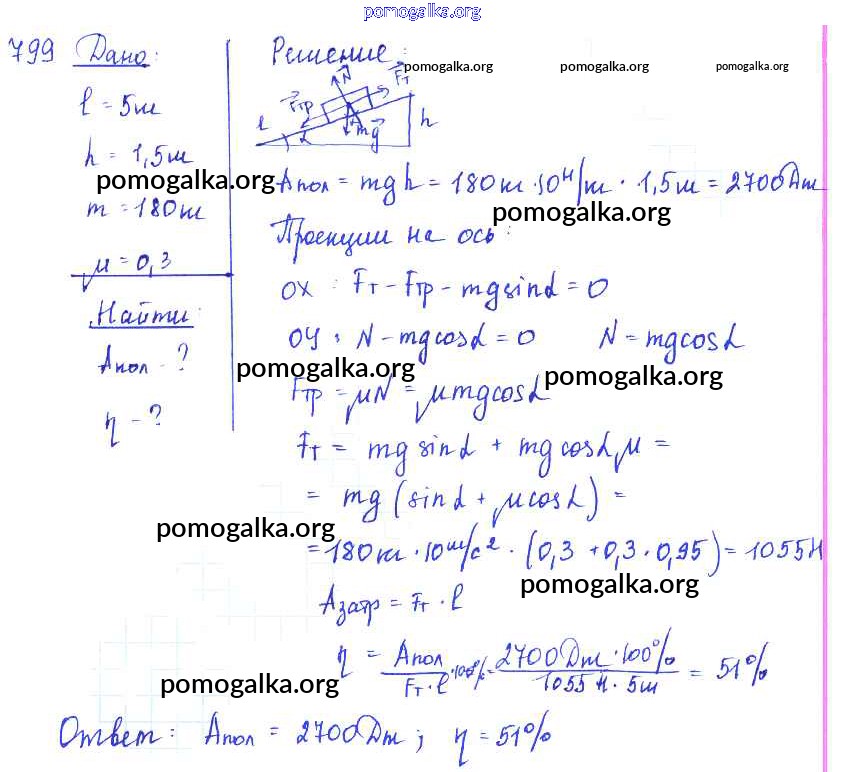 pomogalka.org
799 Дано:
l = 5м
h = 1,5м
pomogalka.org
m = 180кг
μ = 0,3
Найти:
Aпол - ?
η - ?
Решение:
pomogalka.org pomogalka.org pomogalka.org
N Fт Fтр mg l α h
Aпол = mgh = 180кг · 10 Н/кг · 1,5м = 2700Дж
pomogalka.org
Проекции на ось:
OX : Fт - Fтр - mg sinα = 0
OY : N - mg cosα = 0 N = mg cosα
pomogalka.org pomogalka.org
Fтр = μN = μmg cosα
Fт = mg sinα + mg cosα μ =
= mg (sinα + μ cosα) =
pomogalka.org
= 180кг · 10 м/с² · (0,3 + 0,3 · 0,95) = 1055Н
pomogalka.org
Aзатр = Fт · l
η = Aпол / Fт · l · 100% = 2700Дж · 100% / 1055 Н · 5м = 51%
pomogalka.org
Ответ: Aпол = 2700Дж ; η = 51%